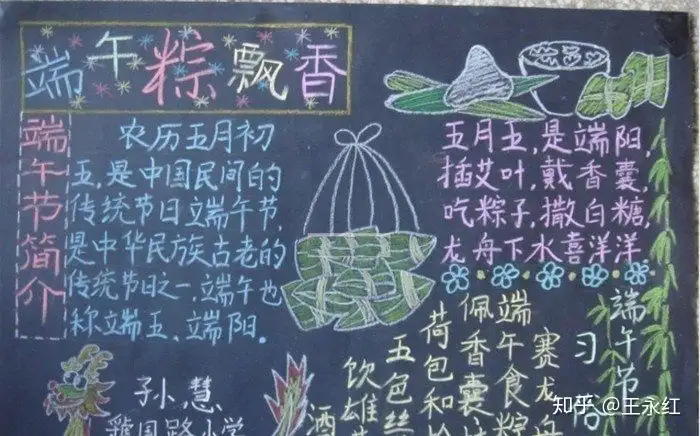 端午粽飘香
端午节简介
农历五月初
五,是中国民间的
传统节日端午节,
是中华民族古老的
传统节日之一,端午也
称端五、端阳。
五月五,是端阳,
插艾叶,戴香囊,
吃粽子,撒白糖,
龙舟下水喜洋洋
端午节
习俗
赛龙舟
端午食粽
佩香囊
荷包和
五色丝
饮雄
酒
孙慧
国路小学
知乎 @王永红